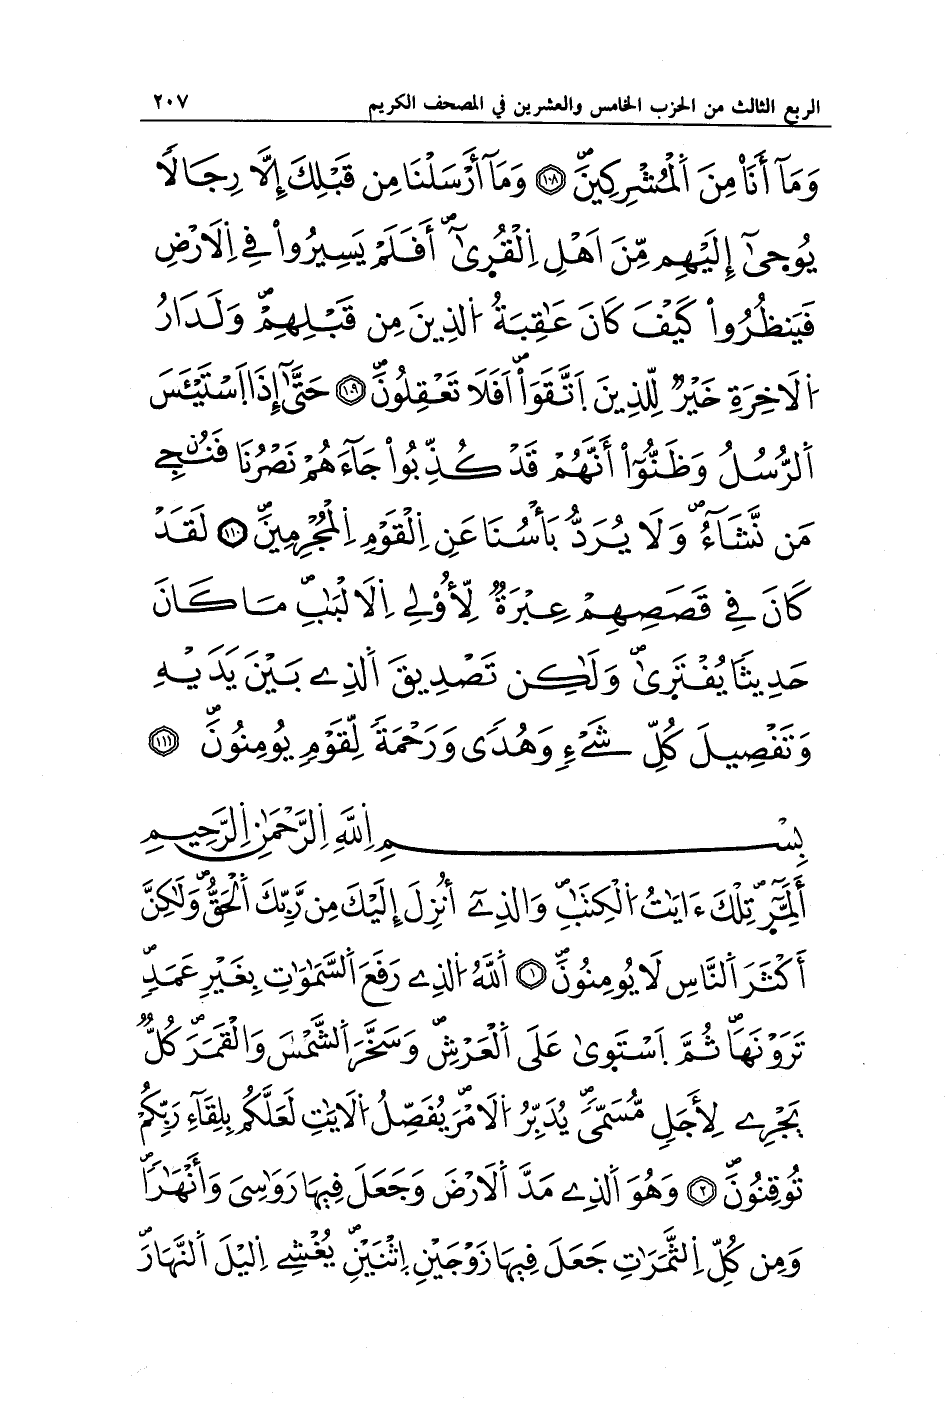 الربع الثالث من الحزب الخامس والعشرين في المصحف الكريم ٢٠٧
وَمَآ أَنَا۠ مِنَ اَ۬لْمُشْرِكِينَۖ ۝١٠٨ وَمَآ أَرْسَلْنَا مِن قَبْلِكَ إِلَّا رِجَالٗا
يُوحۭيٰٓ إِلَيْهِم مِّنَ اَهْلِ اِ۬لْقُر۪يٰٓۖ أَفَلَمْ يَسِيرُواْ فِے اِ۬لَارْضِ
فَيَنظُرُواْ كَيْفَ كَانَ عَٰقِبَةُ اُ۬لذِينَ مِن قَبْلِهِمْۖ وَلَدَارُ
اُ۬لَاخِرَةِ خَيْرٞ لِّلذِينَ اَ۪تَّقَوَاْۖ اَفَلَا تَعْقِلُونَۖ ۝١٠٩ حَتَّىٰٓ إِذَا اَ۪سْتَيْـَٔسَ
اَ۬لرُّسُلُ وَظَنُّوٓاْ أَنَّهُمْ قَدْ كُذِّبُواْ جَآءَهُمْ نَصْرُنَا فَنُنجِے
مَن نَّشَآءُۖ وَلَا يُرَدُّ بَأْسُنَا عَنِ اِ۬لْقَوْمِ اِ۬لْمُجْرِمِينَۖ ۝١١٠ لَقَدْ
كَانَ فِے قَصَصِهِمْ عِبْرَةٞ لِّأُوْلِے اِ۬لَالْبَٰبِۖ مَا كَانَ
حَدِيثاٗ يُفْتَر۪يٰۖ وَلَٰكِن تَصْدِيقَ اَ۬لذِے بَيْنَ يَدَيْهِ
وَتَفْصِيلَ كُلِّ شَےْءٖ وَهُديٗ وَرَحْمَةٗ لِّقَوْمٖ يُومِنُونَۖ ۝١١١
بِسْمِ اِ۬للَّهِ اِ۬لرَّحْمَٰنِ اِ۬لرَّحِيمِ
أَلَٓمِّٓر۪ۖ تِلْكَ ءَايَٰتُ اُ۬لْكِتَٰبِۖ وَالذِےٓ أُنزِلَ إِلَيْكَ مِن رَّبِّكَ اَ۬لْحَقُّۖ وَلَٰكِنَّ
أَكْثَرَ اَ۬لنَّاسِ لَا يُومِنُونَۖ ۝١ اَ۬للَّهُ اُ۬لذِے رَفَعَ اَ۬لسَّمَٰوَٰتِ بِغَيْرِ عَمَدٖۖ
تَرَوْنَهَاۖ ثُمَّ اَ۪سْتَو۪يٰ عَلَى اَ۬لْعَرْشِۖ وَسَخَّرَ اَ۬لشَّمْسَ وَالْقَمَرَۖ كُلّٞ
يَجْرِے لِأَجَلٖ مُّسَمّيٗۖ يُدَبِّرُ اُ۬لَامْرَۖ يُفَصِّلُ اُ۬لَايَٰتِ لَعَلَّكُم بِلِقَآءِ رَبِّكُمْ
تُوقِنُونَۖ ۝٢ وَهُوَ اَ۬لذِے مَدَّ اَ۬لَارْضَ وَجَعَلَ فِيهَا رَوَٰسِيَ وَأَنْهَٰراٗۖ
وَمِن كُلِّ اِ۬لثَّمَرَٰتِ جَعَلَ فِيهَا زَوْجَيْنِ اِ۪ثْنَيْنِۖ يُغْشِے اِ۬ليْلَ اَ۬لنَّهَارَۖ